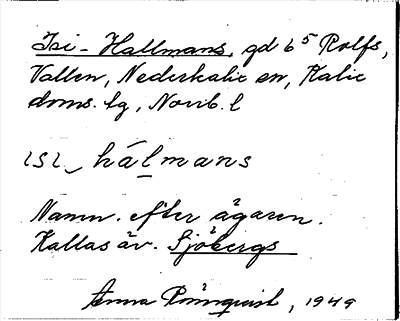 Isi-Hallmans, gd b5 Rolfs,
Vallen, Nederkalix sn, Kalix
doms. lg, Norrb. l
ɩsɩ‿hálmans
Namn. efter ägaren.
Kallas äv. Sjöbergs
Anna Rönnquist, 1949